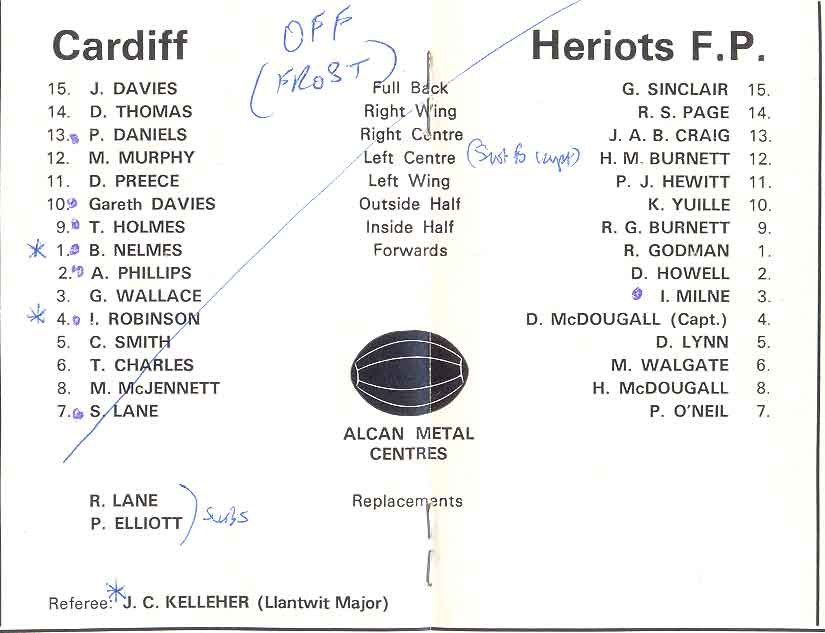 Cardiff
OFF
(FROST)
Heriots F.P.
15. J. DAVIES Full Back G. SINCLAIR 15.
14. D. THOMAS Right Wing R. S. PAGE 14.
13. P. DANIELS Right Centre J. A. B. CRAIG 13.
12. M. MURPHY Left Centre H. M. BURNETT 12.
11. D. PREECE Left Wing P. J. HEWITT 11.
10. Gareth DAVIES Outside Half K. YUILLE 10.
9. T. HOLMES Inside Half R. G. BURNETT 9.
* 1. B. NELMES Forwards R. GODMAN 1.
2. A. PHILLIPS D. HOWELL 2.
3. G. WALLACE I. MILNE 3.
* 4. I. ROBINSON D. McDOUGALL (Capt.) 4.
5. C. SMITH D. LYNN 5.
6. T. CHARLES M. WALGATE 6.
8. M. McJENNETT H. McDOUGALL 8.
7. S. LANE P. O'NEIL 7.
ALCAN METAL
CENTRES
R. LANE Replacements
P. ELLIOTT
subs
Referee: * J. C. KELLEHER (Llantwit Major)